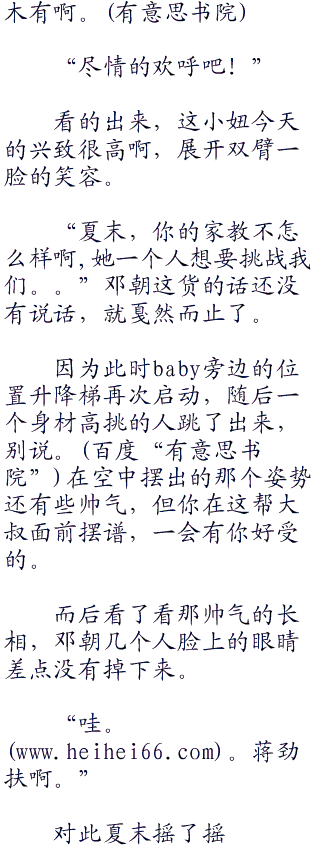 木有啊。(有意思书院)
“尽情的欢呼吧！”
看的出来，这小妞今天
的兴致很高啊，展开双臂一
脸的笑容。
“夏末，你的家教不怎
么样啊,她一个人想要挑战我
们。。”邓朝这货的话还没
有说话，就戛然而止了。
因为此时baby旁边的位
置升降梯再次启动，随后一
个身材高挑的人跳了出来，
别说。(百度“有意思书
院”)在空中摆出的那个姿势
还有些帅气，但你在这帮大
叔面前摆谱，一会有你好受
的。
而后看了看那帅气的长
相，邓朝几个人脸上的眼睛
差点没有掉下来。
“哇。
(www.heihei66.com)。蒋劲
扶啊。”
对此夏末摇了摇